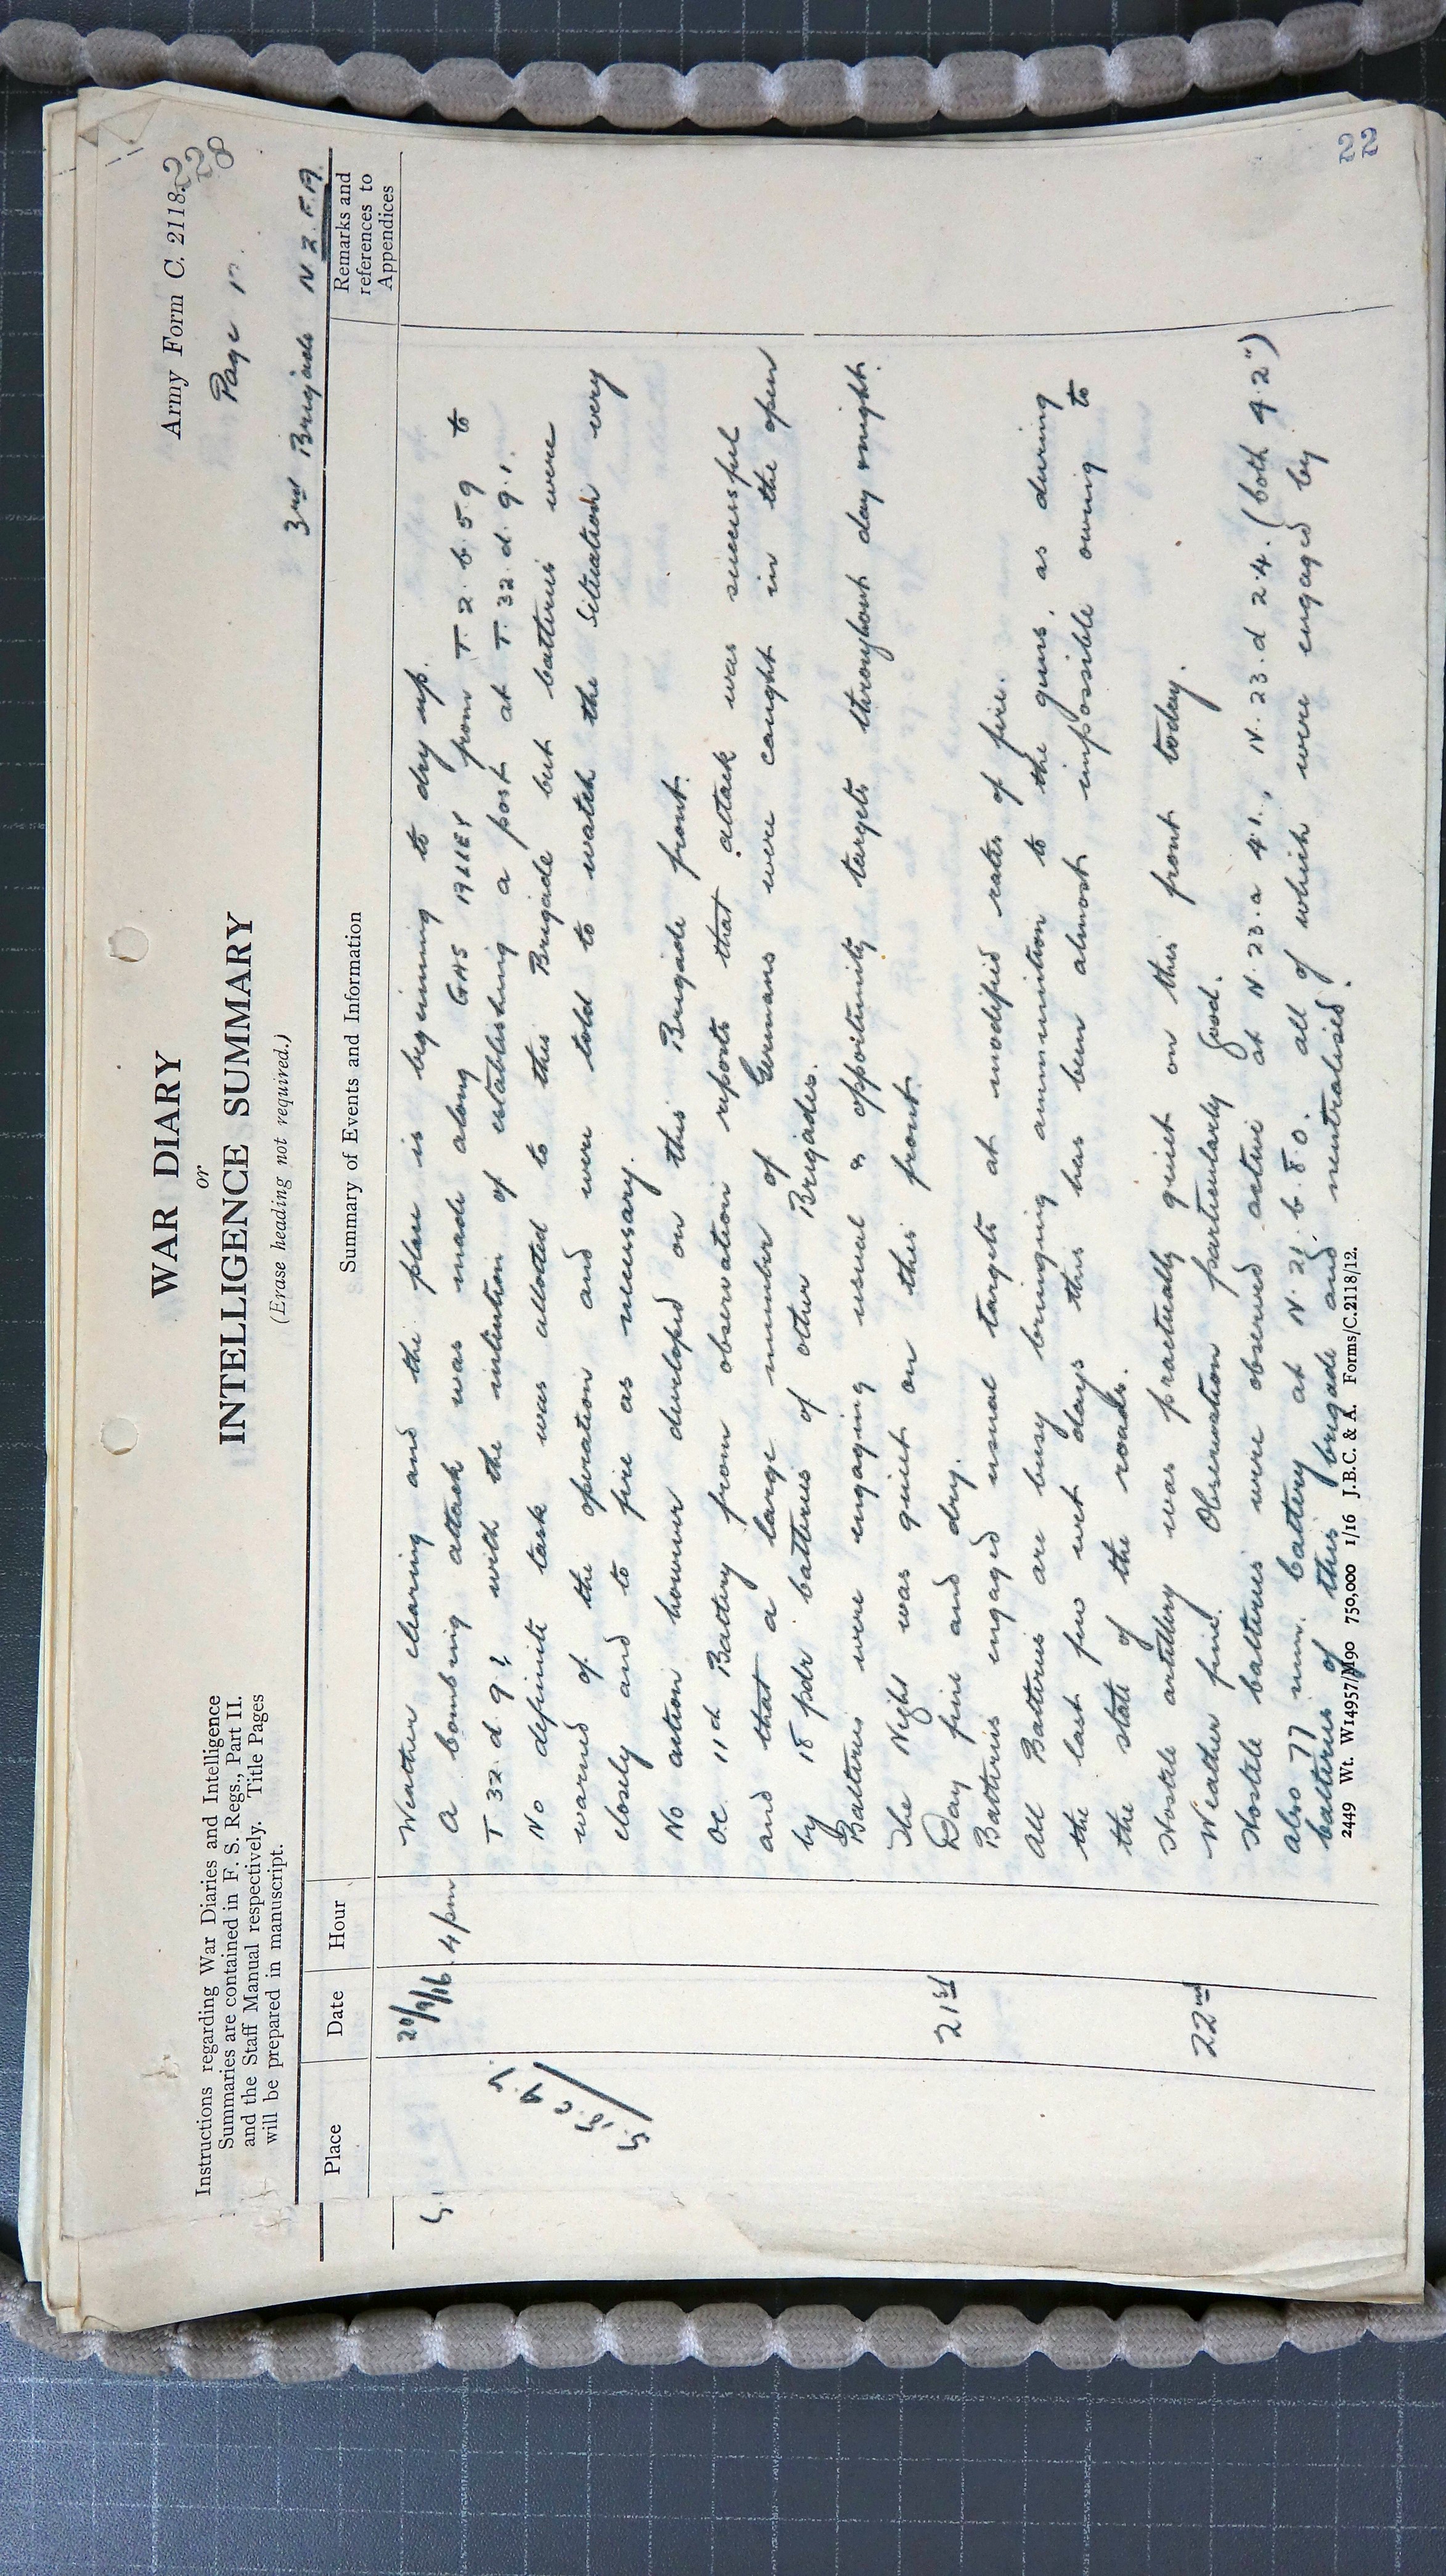 Army Form C. 2118.
228
Page
WAR DIARY
or
INTELLIGENCE SUMMARY
(Erase heading not required.)
3rd Brigade N.Z.F.A.
Instructions regarding War Diaries and Intelligence
Summaries are contained in F. S. Regs., Part II.
and the Staff Manual respectively. Title Pages
will be prepared in manuscript.
Place
Date
Hour
Summary of Events and Information
Remarks and
references to
Appendices
S.
S.18.c.9.5.
20/9/16. 4 pm
Weather clearing and the place is beginning to dry up.
A bombing attack was made along GAS ALLEY from T.2.b.5.9 to
T 32.d.9.? with the intention of establishing a post at T.32.d.9.1.
No definite task was allotted to this Brigade but batteries were
warned of the operation and were told to watch the situation very
closely and to fire as necessary.
No action however developed on this Brigade front.
OC. 11th Battery from observation reports that attack was successful
and that a large number of Germans were caught in the open
by 18 pdr batteries of other Brigades.
Batteries were engaging usual & opportunity targets throughout day & night.
The Night was quiet on this front.
21st
Day fine and dry.
Batteries engaged usual targets at modified rates of fire.
All Batteries are busy bringing ammunition to the guns, as during
the last few wet days this has been almost impossible owing to
the state of the roads.
Hostile artillery was practically quiet on this front today.
22nd
Weather fine. Observation particularly good.
Hostile batteries were observed active at N.23.a 4.1., N.23.d 2.4. (both 4.2")
also 77 mm. battery at N.21.b.8.0. all of which were engaged by
batteries of this brigade and neutralised.
2449 Wt. W14957/M90 750,000 1/16 J.B.C. & A. Forms/C.2118/12.
22